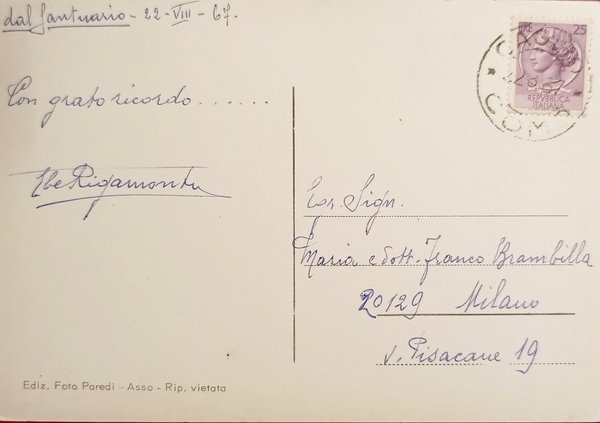 dal Santuario - 22 - VIII - 67.
Con grato ricordo.......
Ebe Rigamonti
LIRE 25
REPVBBLICA
ITALIANA
COMO
Gen. Sign.
Maria e Dott. Franco Brambilla
20129 Milano
v. Pisacane 19
Ediz. Foto Paredi - Asso - Rip. vietata